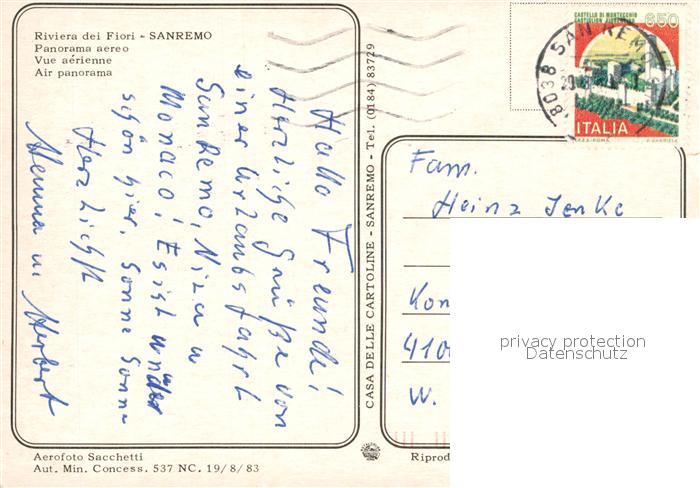 Riviera dei Fiori - SANREMO
Panorama aereo
Vue aérienne
Air panorama
Hallo Freunde!
Herzliche Grüße von
einer Urlaubsfahrt
San Remo, Niza u
Monaco! Es ist wunder
schön hier. Sonne Sonne
Herzlichst
Hemma u Herbert
Aerofoto Sacchetti
Aut. Min. Concess. 537 NC. 19/8/83
CASA DELLE CARTOLINE - SANREMO - Tel. (0184) 83729
CASTELLO DI MONTECCHIO
650
ITALIA
18038 SAN REMO
Fam.
Heinz Jenke
Kon
410
W.
Riprod
privacy protection
Datenschutz